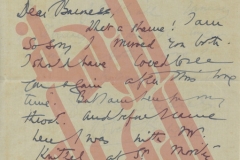 Dear Barness,
What a shame! I am
so sorry I missed you both.
I should have loved to see
you again after this long
time. But I am here for my
throat. And before I came
here I was with Mr.
at St. Moritz